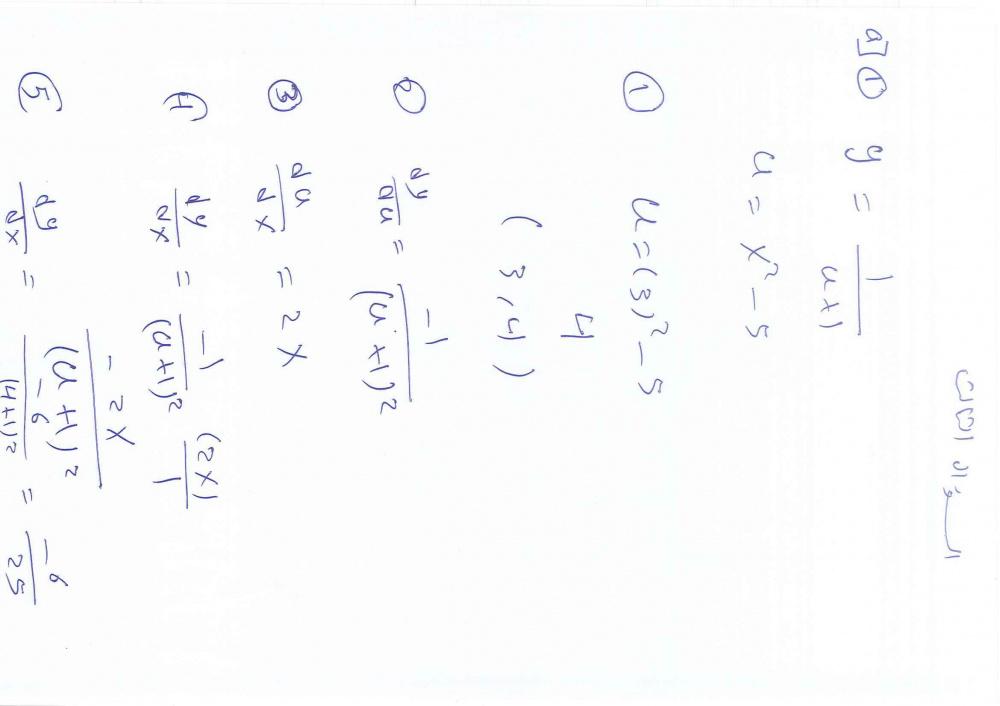 السؤال الثالث
a] ① y = 1/(u+1)
u = x² - 5
① u = (3)² - 5
4
(3, 4)
② dy/du = -1/(u+1)²
③ du/dx = 2x
④ dy/dx = -1/(u+1)² (2x)/1
-2x/(u+1)²
⑤ dy/dx = -6/(4+1)² = -6/25